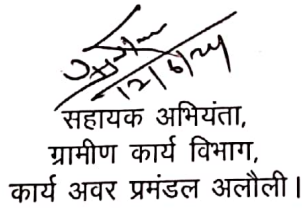 12/6/24
सहायक अभियंता,
ग्रामीण कार्य विभाग,
कार्य अवर प्रमंडल अलौली।